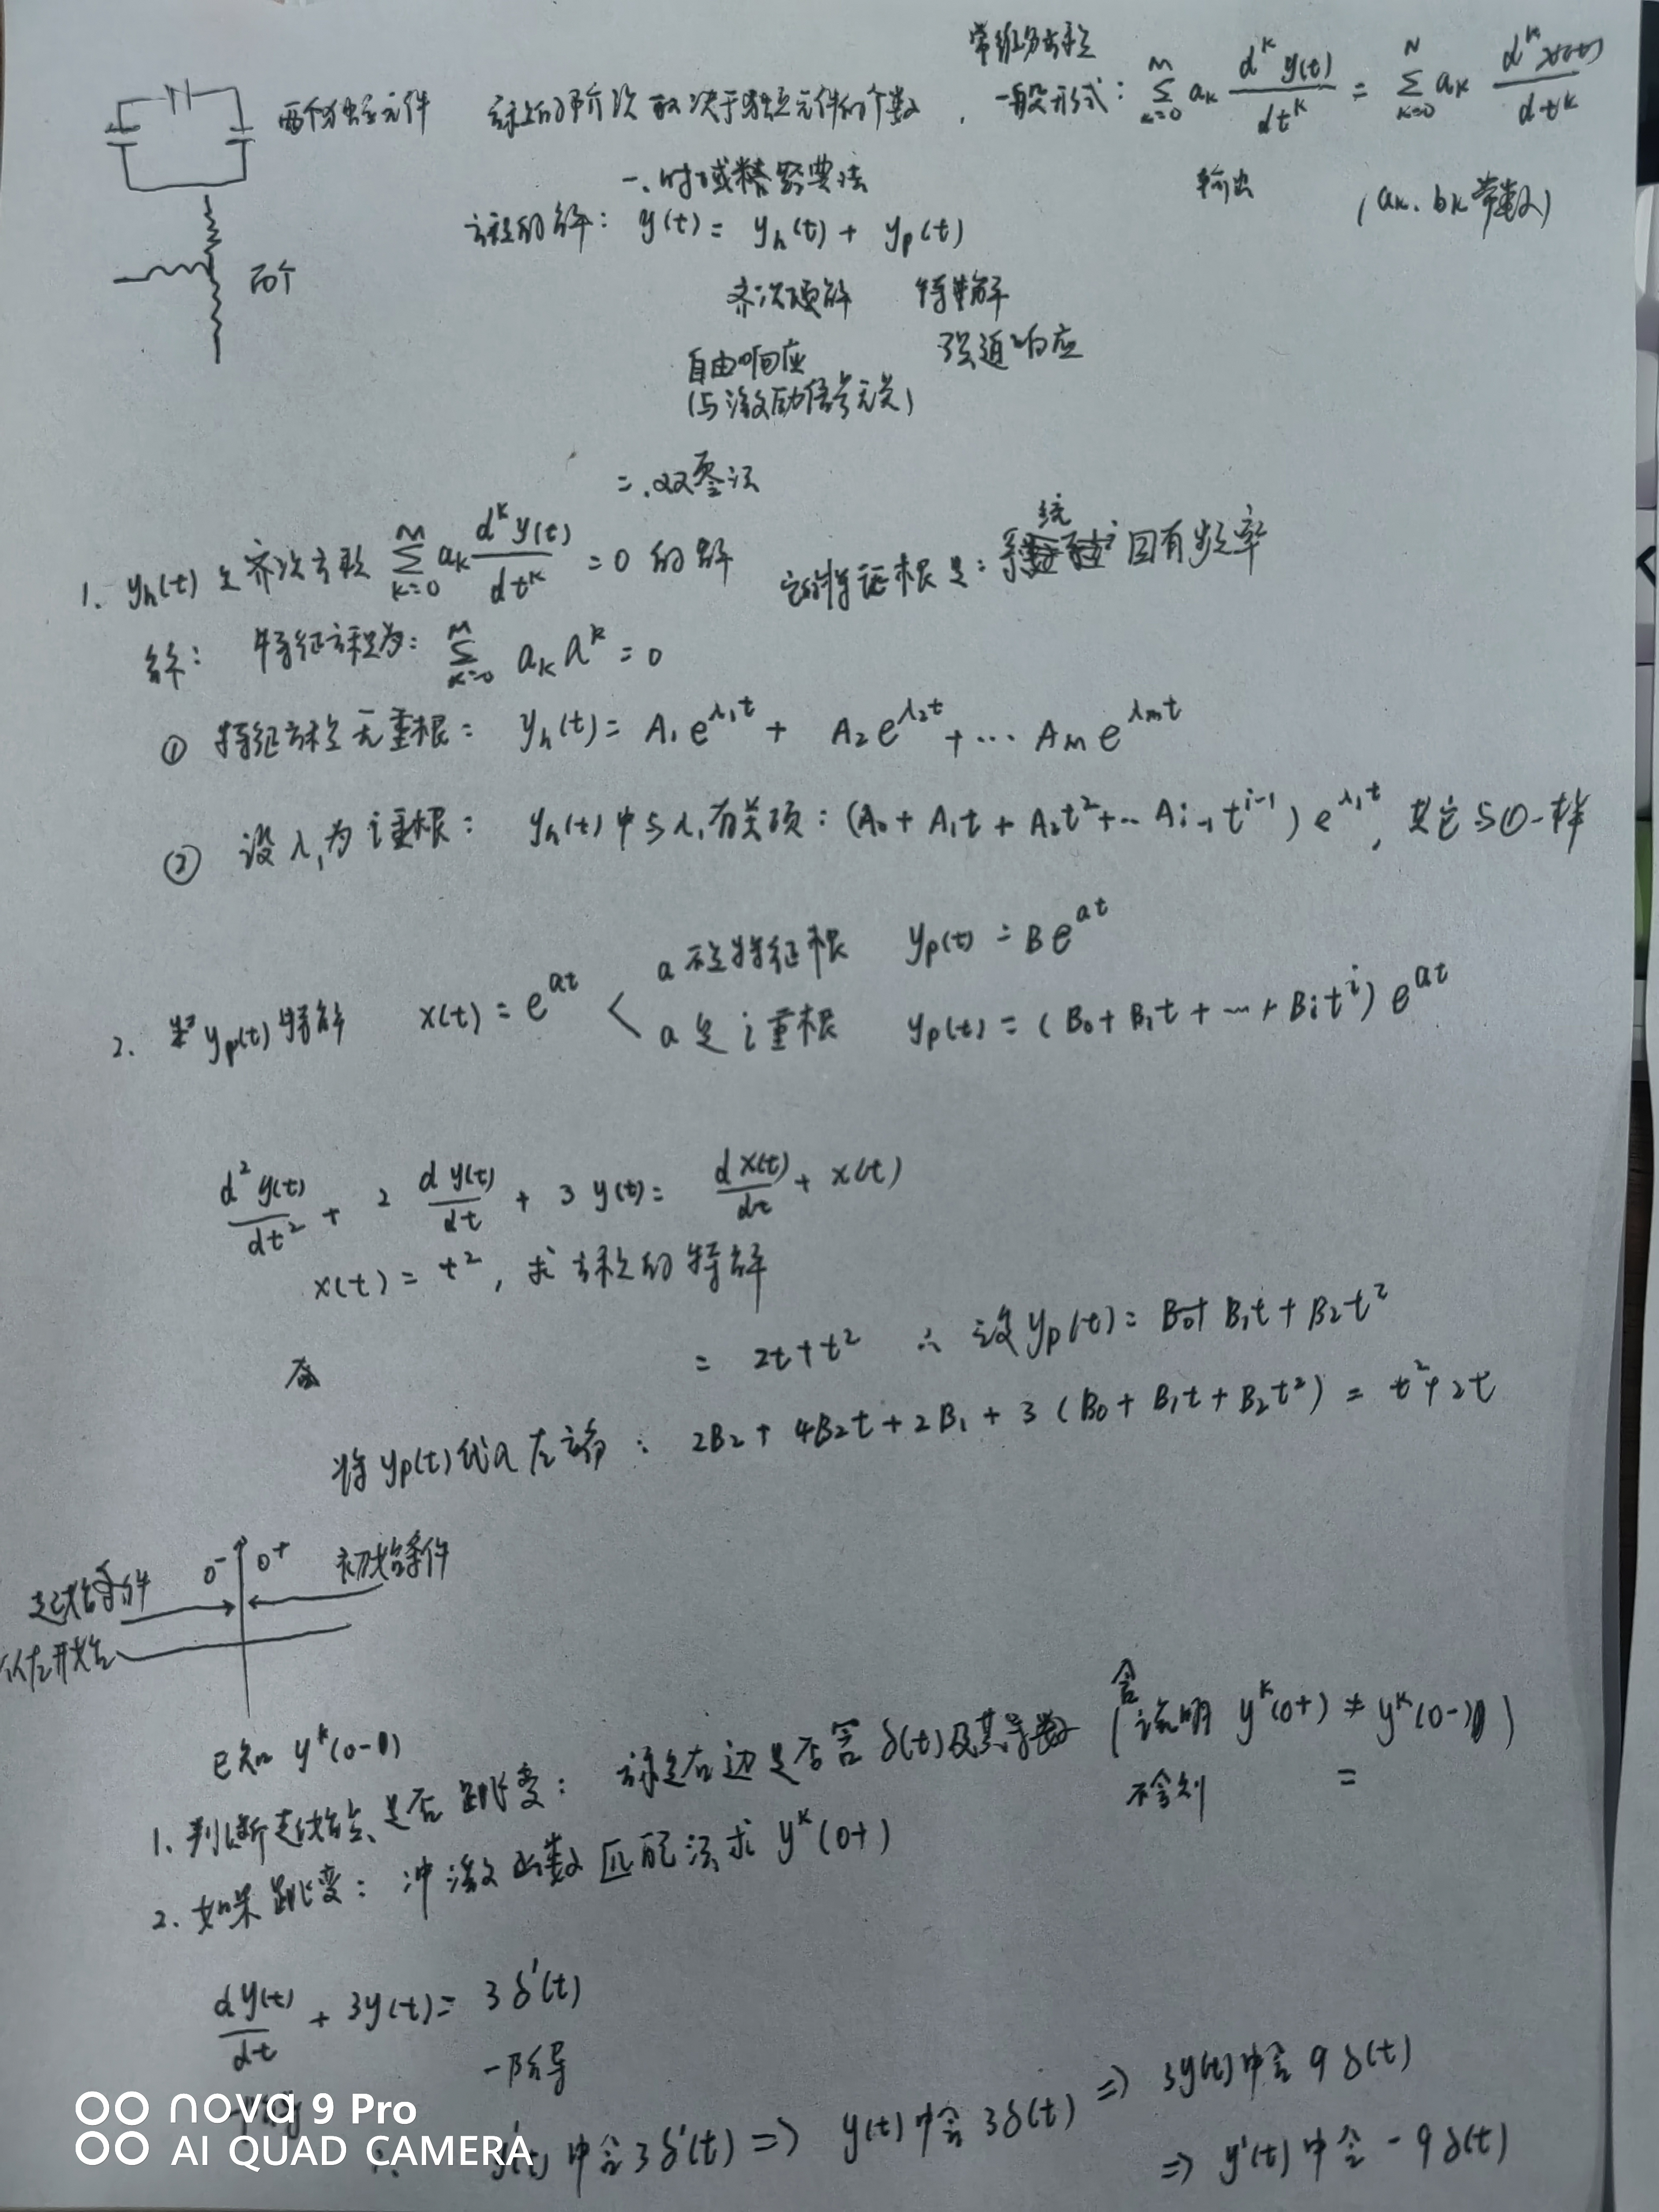 常微分方程
两个独立元件 方程的阶次取决于独立元件的个数, 一般形式: \sum_{k=0}^{M} a_k \frac{d^k y(t)}{dt^k} = \sum_{k=0}^{N} a_k \frac{d^k x(t)}{dt^k}
输出 (a_k、b_k 常数)
一、时域经典法
方程的解: y(t) = y_h(t) + y_p(t)
两个
齐次项解 特解
自由响应 强迫响应
(与激励信号无关)
二、双零法
1. y_h(t) 是齐次方程 \sum_{k=0}^{M} a_k \frac{d^k y(t)}{dt^k} = 0 的解 它的特征根是: 系统固有频率
解: 特征方程为: \sum_{k=0}^{M} a_k a^k = 0
① 特征方程无重根: y_h(t) = A_1 e^{λ_1 t} + A_2 e^{λ_2 t} + ··· A_m e^{λ_m t}
② 设 λ_1 为 i 重根: y_h(t) 中与 λ_1 有关项: (A_0 + A_1 t + A_2 t^2 + ··· A_{i-1} t^{i-1}) e^{λ_1 t}, 其它与①一样
2. 求 y_p(t) 特解 x(t) = e^{at} < a 不是特征根 y_p(t) = B e^{at}
a 是 i 重根 y_p(t) = (B_0 + B_1 t + ··· + B_i t^i) e^{at}
\frac{d^2 y(t)}{dt^2} + 2 \frac{d y(t)}{dt} + 3 y(t) = \frac{d x(t)}{dt} + x(t)
x(t) = t^2, 求方程的特解
右 = 2t + t^2 ∴ 设 y_p(t) = B_0 + B_1 t + B_2 t^2
将 y_p(t) 代入左端: 2B_2 + 4B_2 t + 2B_1 + 3 (B_0 + B_1 t + B_2 t^2) = t^2 + 2t
起始条件 0^- 0^+ 初始条件
从左开始
已知 y^k(0-)
含
1. 判断起始点是否跳变: 方程右边是否含 δ(t) 及其导数 (说明 y^k(0+) ≠ y^k(0-))
不含则 =
2. 如果跳变: 冲激函数匹配法求 y^k(0+)
\frac{dy(t)}{dt} + 3y(t) = 3δ'(t)
一阶导
∴ y'(t) 中含 3δ'(t) => y(t) 中含 3δ(t) => 3y(t) 中含 9δ(t)
=> y'(t) 中含 -9δ(t)
nova 9 Pro
AI QUAD CAMERA